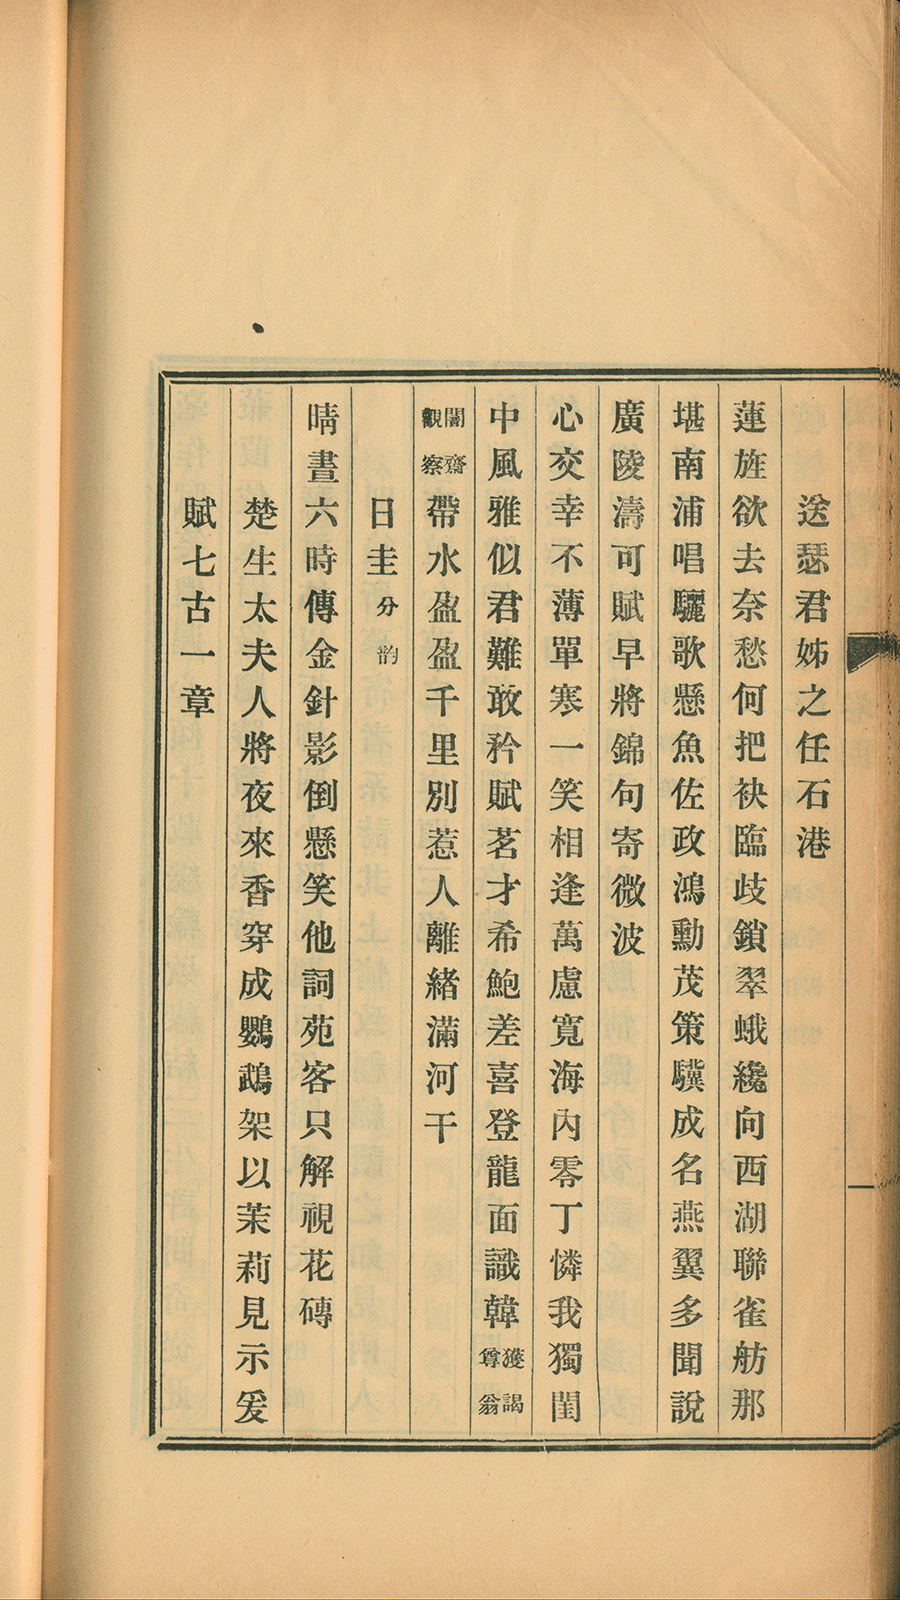 送瑟君姊之任石港
蓮旌欲去奈愁何把袂臨歧鎖翠蛾纔向西湖聯雀舫那
堪南浦唱驪歌懸魚佐政鴻勳茂策驥成名燕翼多聞說
廣陵濤可賦早將錦句寄微波
心交幸不薄單寒一笑相逢萬慮寬海內零丁憐我獨閨
中風雅似君難敢矜賦茗才希鮑差喜登龍面識韓獲謁尊翁
闇齋觀察帶水盈盈千里別惹人離緒滿河干
日圭分韵
晴晝六時傳金針影倒懸笑他詞苑客只解視花磚
楚生太夫人將夜來香穿成鸚鵡架以茉莉見示爰
賦七古一章